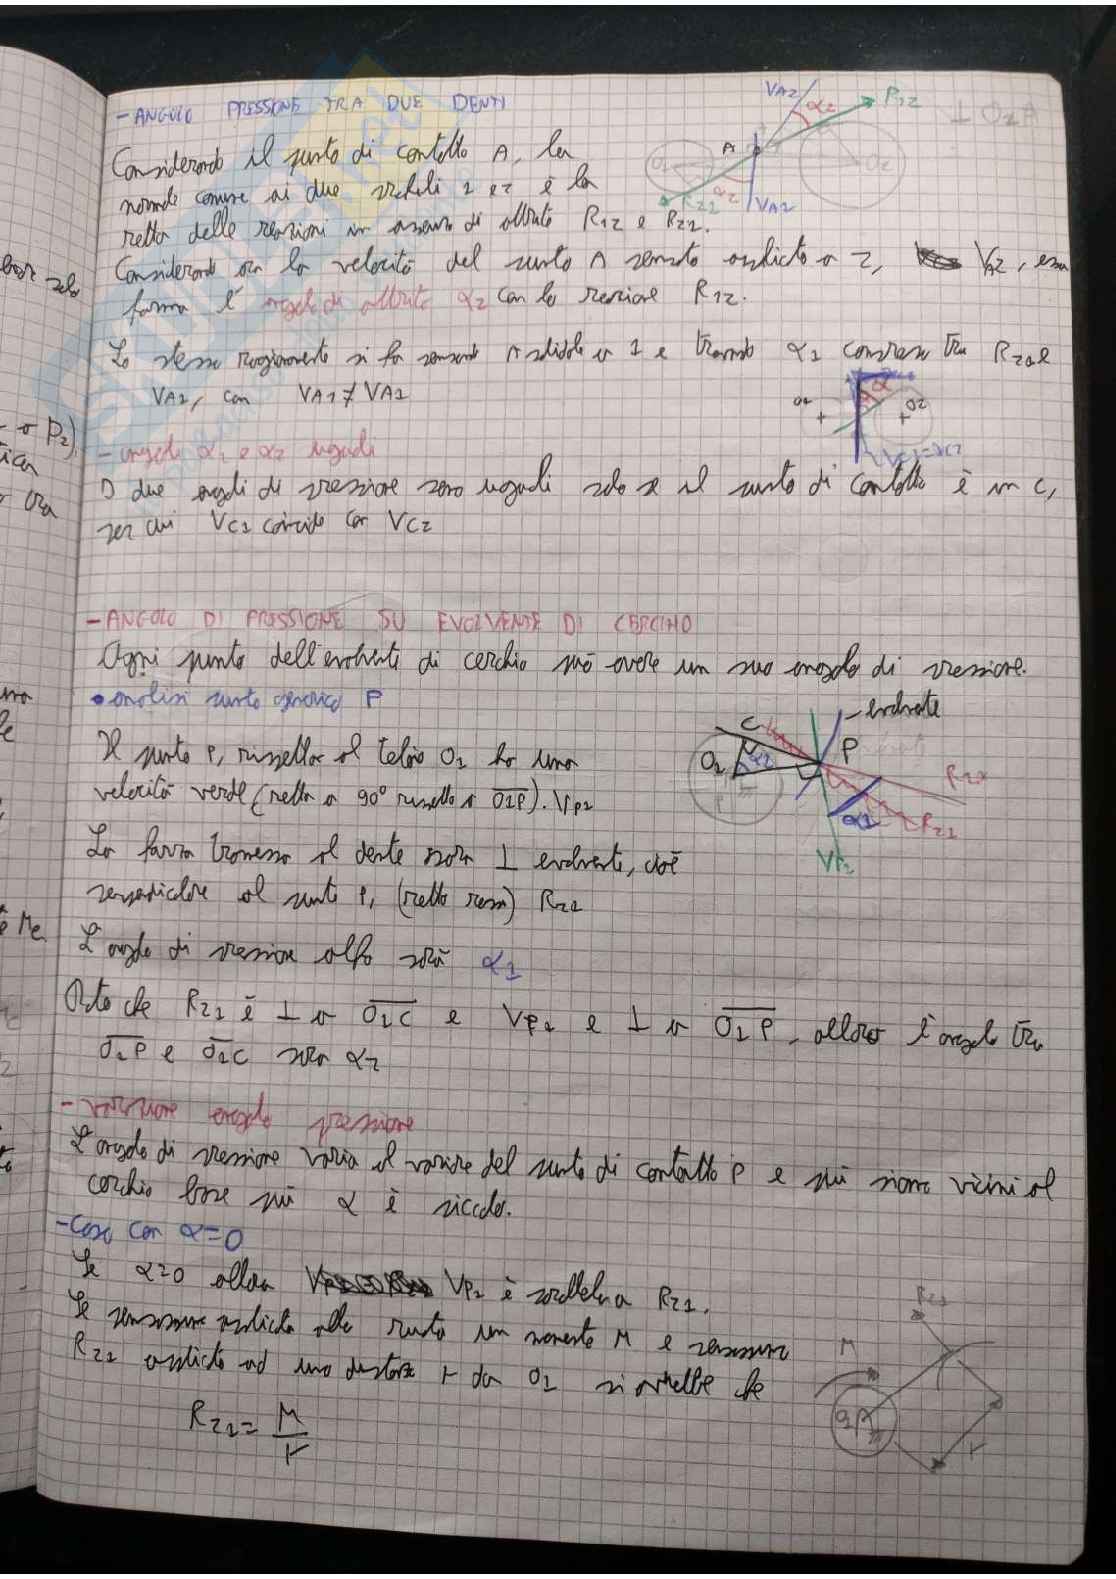 - ANGOLO PRESSIONE TRA DUE DENTI
Considerando il punto di contatto A, la
normale comune ai due 1 e 2 è la
retta delle reazioni in assenza di attrito R12 e R21.
Considerando ora la velocità del punto A pensato solidale a 2, VA2, essa
forma l' angolo di attrito α2 con la reazione R12.
Lo stesso ragionamento si fa pensando A solidale a 1 e trovando α1 compreso tra R21 e
VA1, con VA1 ≠ VA2
- angoli α1 e α2 uguali
I due angoli di pressione sono uguali solo se il punto di contatto è in C,
per cui VC1 coincide con VC2
- ANGOLO DI PRESSIONE SU EVOLVENTE DI CERCHIO
Ogni punto dell'evolvente di cerchio può avere un suo angolo di pressione.
• analisi punto generico P
Il punto P, rispetto al telaio O1 ha una
velocità verde (retta a 90° rispetto a O1P). VP1
La forza trasmessa al dente sarà ⊥ evolvente, cioè
perpendicolare al punto P, (retta rossa) R21
L'angolo di pressione alfa sarà α1
Dato che R21 è ⊥ a O1C e VP1 è ⊥ a O1P, allora l'angolo tra
O1P e O1C sarà α1
- variazione angolo pressione
L'angolo di pressione varia al variare del punto di contatto P e più siamo vicini al
cerchio base più α è piccolo.
- Caso con α=0
Se α=0 allora VP1 è parallela a R21.
Se pensassimo applicato alla ruota un momento M e pensassimo
R21 applicato ad una distanza r da O1 si avrebbe che
R21 = M/r
VA2
α2
R12
A
O1
O2
R21
VA1
O2
α
evolvente
C
P
O1
R21
α1
VP1
R21
M
O1
r